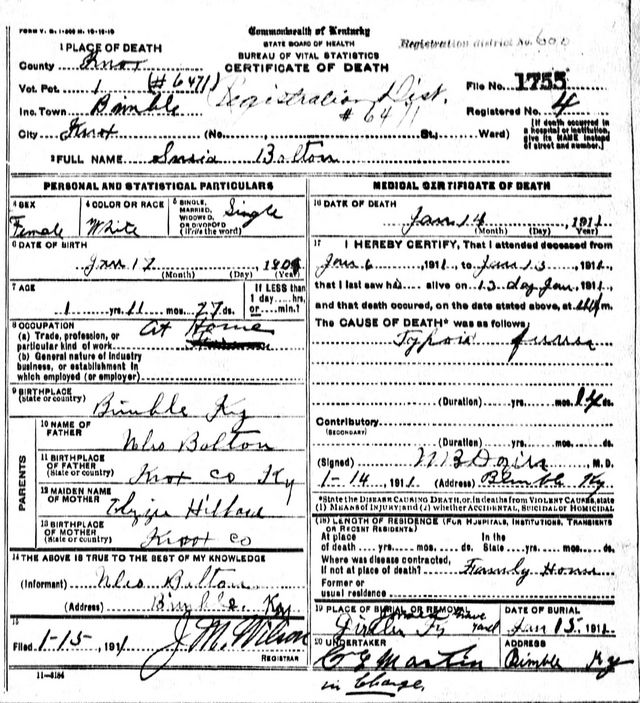 FORM V. S. 1-300 M. 10-10-10
Commonwealth of Kentucky
STATE BOARD OF HEALTH
BUREAU OF VITAL STATISTICS
CERTIFICATE OF DEATH
Registration district No. 600
1 PLACE OF DEATH
County Knox
Vot. Pct. 1 (#6471)
Registration Dist.
#6471
File No. 1755
Inc. Town Bimble
Registered No. 4
City Knox (No. St.; Ward)
[If death occurred in
a hospital or institution,
give its NAME instead
of street and number.]
2 FULL NAME Susia Bolton
PERSONAL AND STATISTICAL PARTICULARS
3 SEX
Female
4 COLOR OR RACE
White
5 SINGLE,
MARRIED,
WIDOWED,
OR DIVORCED
(Write the word)
Single
6 DATE OF BIRTH
Jan 17
(Month) (Day) (Year)
7 AGE
1 yrs. 11 mos. 27 ds.
If LESS than
1 day, hrs.
or min.?
8 OCCUPATION
(a) Trade, profession, or
particular kind of work
At Home
(b) General nature of industry
business, or establishment in
which employed (or employer)
9 BIRTHPLACE
(State or country)
Bimble Ky
PARENTS
10 NAME OF
FATHER
Bolton
11 BIRTHPLACE
OF FATHER
(State or country)
Knox co Ky
12 MAIDEN NAME
OF MOTHER
13 BIRTHPLACE
OF MOTHER
(State or country)
Knox co
14 THE ABOVE IS TRUE TO THE BEST OF MY KNOWLEDGE
(Informant) Bolton
(Address) Bimble Ky
15
Filed 1-15, 1911 J. M. Wilson
REGISTRAR
11-6184
MEDICAL CERTIFICATE OF DEATH
16 DATE OF DEATH
Jan 14 1911
(Month) (Day) (Year)
17 I HEREBY CERTIFY, That I attended deceased from
Jan 6, 1911, to Jan 13, 1911,
that I last saw h alive on 13 day Jan, 1911,
and that death occurred, on the date stated above, at m.
The CAUSE OF DEATH* was as follows:
(Duration) yrs. mos. 14 ds.
Contributory
(SECONDARY)
(Duration) yrs. mos. ds.
(Signed) M. D.
1-14, 1911 (Address) Bimble Ky.
*State the DISEASE CAUSING DEATH, or, in deaths from VIOLENT CAUSES, state
(1) MEANS OF INJURY; and (2) whether ACCIDENTAL, SUICIDAL or HOMICIDAL
(18) LENGTH OF RESIDENCE (FOR HOSPITALS, INSTITUTIONS, TRANSIENTS
OR RECENT RESIDENTS)
At place
of death yrs. mos. ds.
In the
State yrs. mos. ds.
Where was disease contracted,
If not at place of death? Family Home
Former or
usual residence
19 PLACE OF BURIAL OR REMOVAL
Grave yard
DATE OF BURIAL
Jan 15, 1911
20 UNDERTAKER
Martin
in Charge
ADDRESS
Bimble Ky